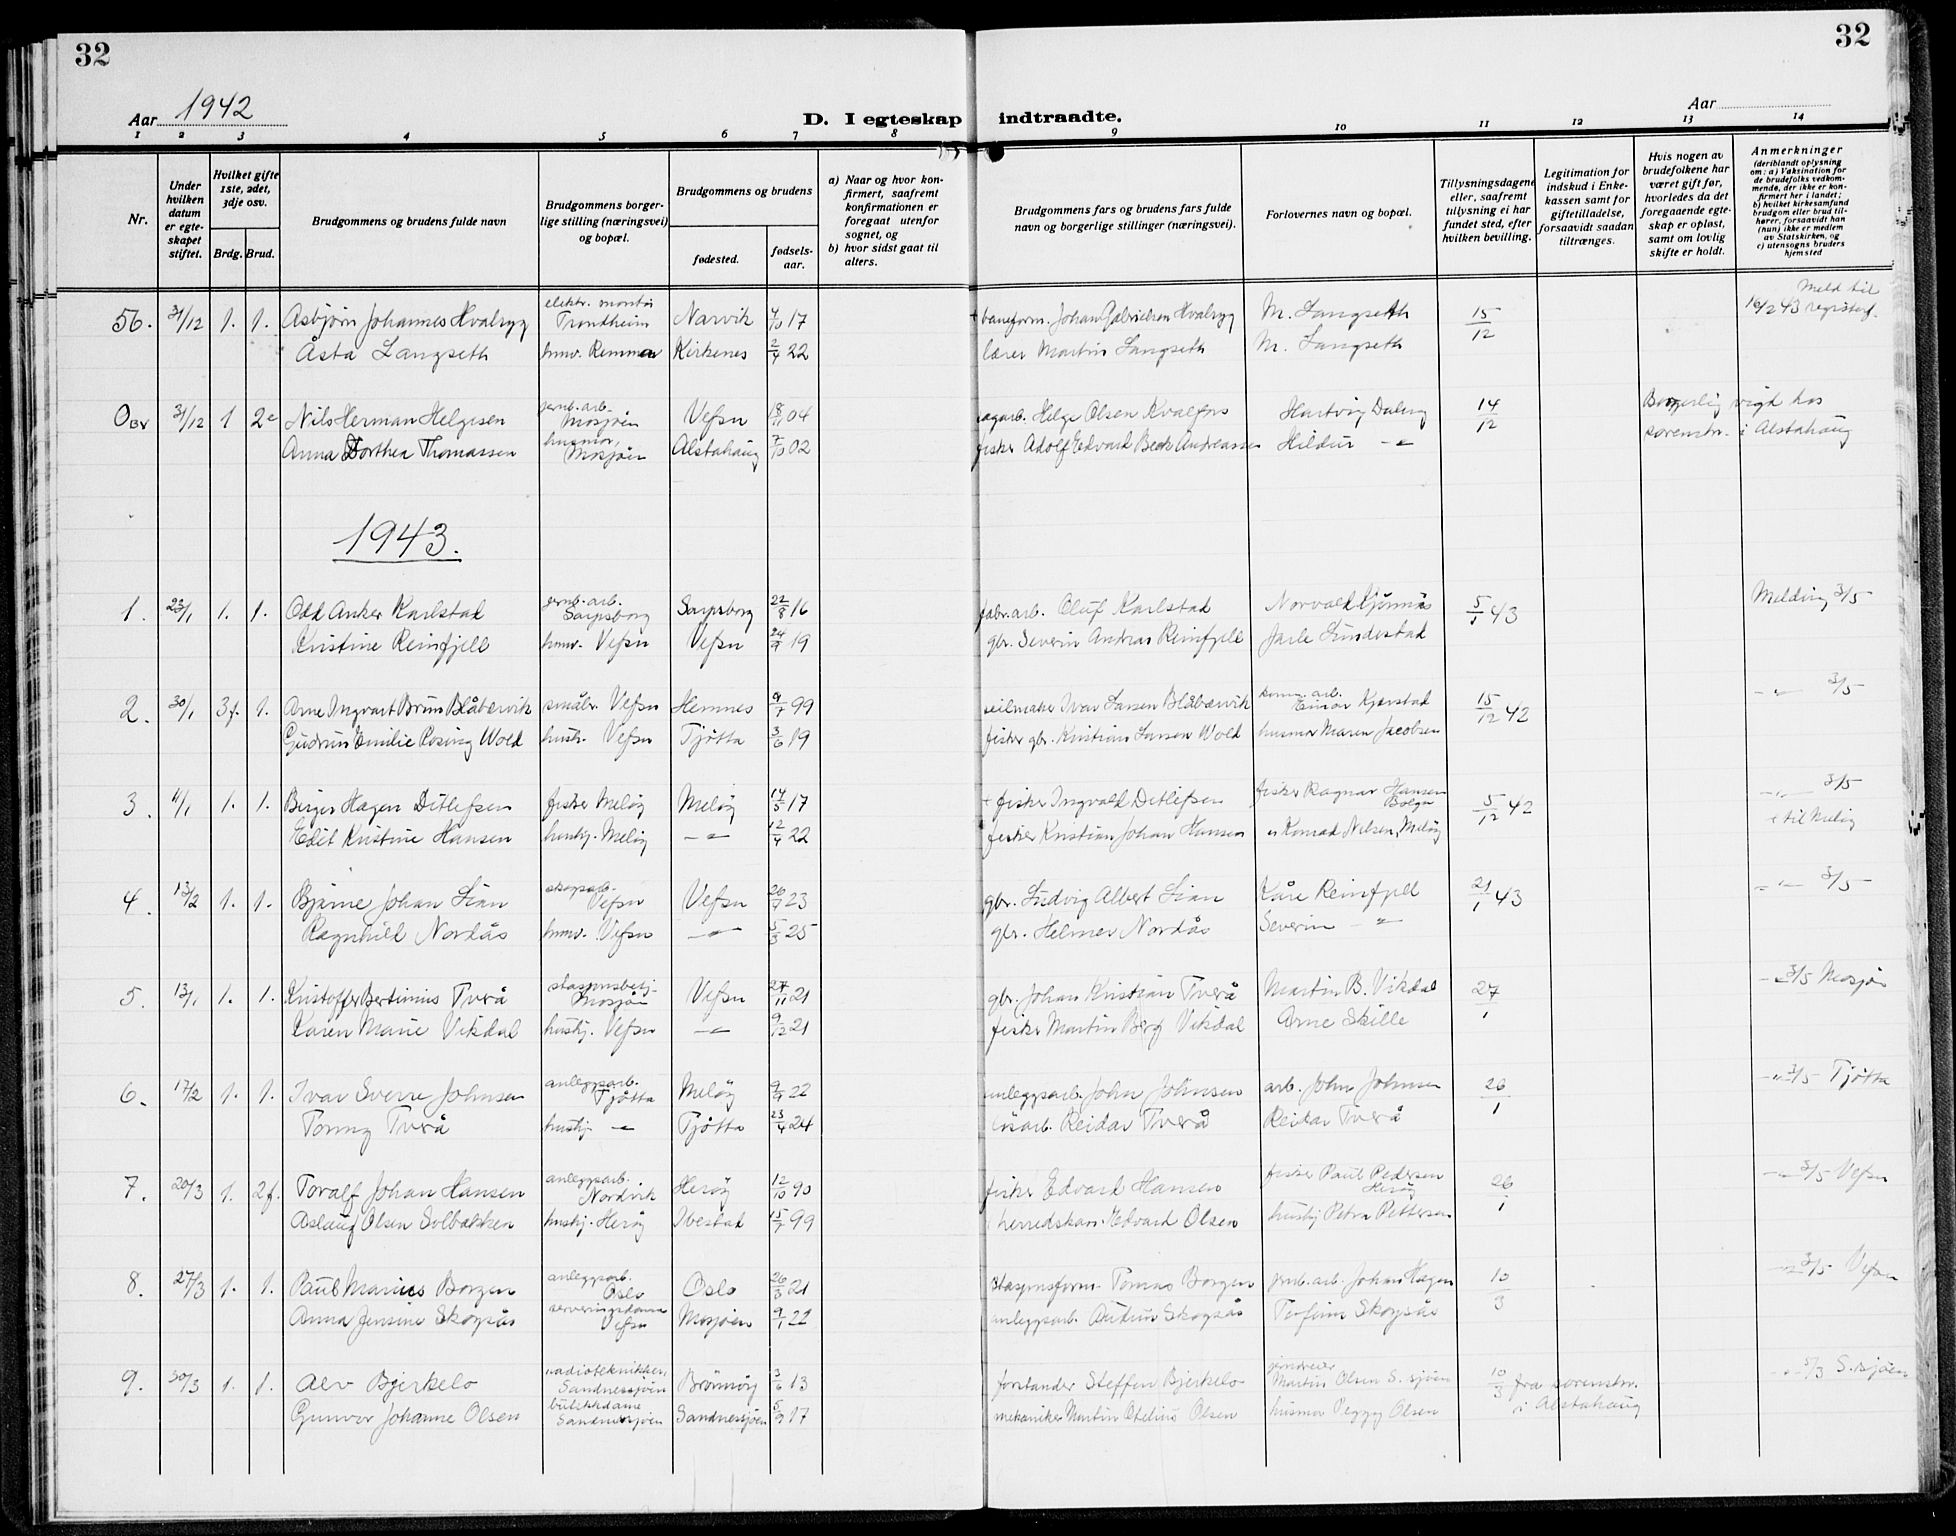 32
32
Aar 1942
D. I egteskap indtraadte.
Aar
1 2 3 4 5 6 7 8 9 10 11 12 13 14
Nr.
Under hvilken datum er egteskapet stiftet.
Hvilket gifte 1ste, 2det, 3dje osv.
Brdg. Brud.
Brudgommens og brudens fulde navn
Brudgommens borgerlige stilling (næringsvei) og bopæl.
Brudgommens og brudens
fødested.
fødselsaar.
a) Naar og hvor konfirmert, saafremt konfirmationen er foregaat utenfor sognet, og
b) hvor sidst gaat til alters.
Brudgommens fars og brudens fars fulde navn og borgerlige stillinger (næringsvei).
Forlovernes navn og bopæl.
Tillysningsdagene eller, saafremt tillysning ei har fundet sted, efter hvilken bevilling.
Legitimation for indskud i Enkekassen samt for giftetilladelse, forsaavidt saadan tiltrænges.
Hvis nogen av brudefolkene har været gift før, hvorledes da det foregaaende egteskap er opløst, samt om lovlig skifte er holdt.
Anmerkninger
(deriblandt oplysning om: a) Vaksination for de brudefolks vedkommende, der ikke er konfirmert her i landet; b) hvilket kirkesamfund brudgom eller brud tilhører, forsaavidt han (hun) ikke er medlem av Statskirken, og c) utensogns bruders hjemsted
56. 31/12 1. 1. Asbjørn Johannes Hvalryg elektr. montør Trondheim Narvik 4/10 17 + baneform. Johan Gabrielsen Hvalryg M. Langseth 15/12 Meld til 16/2 43 registerf.
Åsta Langseth hmv. Remma Kirkenes 2/4 22 lærer Martin Langseth M. Langseth
Obv 31/12 1 2e Nils Herman Helgesen jernb.arb. Mosjøen Vefsn 18/11 04 sagarb. Helge Olsen Kvalfors Hartvig Daleng 14/12 Borgerlig vigd hos
Anna Dorthea Thomassen husmor, Mosjøen Alstahaug 7/10 02 fisker Adolf Edvard Beck Andreassen Hildur -"- sorenskr. i Alstahaug
1943.
1. 23/1 1. 1. Odd Anker Karlstad jernb.arb. Sarpsborg Sarpsborg 22/8 16 fabr.arb. Oluf Karlstad Norvald 5/1 43 Melding 3/5
Kristine Reinfjell hmv. Vefsn Vefsn 24/9 19 gbr. Severin Andreas Reinfjell Jarle Lindestad
2. 30/1 3f. 1. Arne Ingvart Bruun Blåbærvik småbr. Vefsn Hemnes 9/7 99 seilmaker Ivar Larsen Blåbærvik Einar Kjærstad 15/12 42 -"- 3/5
Gudrun Emilie Rosing Wold hush. Vefsn Tjøtta 3/6 19 fisker gbr. Kristian Larsen Wold husmor Maren Jacobsen
3. 4/1 1. 1. Birger Hagen Ditlefsen fisker Meløy Meløy 14/5 17 + fisker Ingvald Ditlefsen fisker Ragnar Hansen Bolga 5/12 42 -"- 3/5
Edit Kristine Hansen hushj. Meløy -"- 12/4 22 fisker Kristian Johan Hansen " Konrad Nilsen, Meløy til Meløy
4. 13/2 1. 1. Bjarne Johan Lian skogsarb. Vefsn Vefsn 26/7 23 gbr. Ludvig Albert Lian Kåre Reinfjell 21/1 43 -"- 3/5
Ragnhild Nordås hmv. Vefsn -"- 5/3 25 gbr. Helmer Nordås Severin -"-
5. 13/1 1. 1. Kristoffer Bertinius Tverå stasjonsbetj. Mosjøen Vefsn 27/11 21 gbr. Johan Kristian Tverå Martin B. Vikdal 27/1 -"- 3/5 Mosjøen
Karen Marie Vikdal hushj. Vefsn -"- 9/12 21 fisker Martin Berg Vikdal Arne Skille
6. 17/2 1. 1. Ivar Sverre Johnsen anleggsarb. Tjøtta Meløy 9/9 22 anleggsarb. John Johnsen arb. John Johnsen 26/1 -"- 3/5 Tjøtta
Tonny Tverå hushj. -"- Tjøtta 23/4 24 løsarb. Reidar Tverå Reidar Tverå
7. 20/3 1. 2f. Toralf Johan Hansen anleggsarb. Nordvik Herøy 12/10 90 fisker Edvard Hansen fisker Paul Pedersen Herøy 26/1 -"- 3/5 Vefsn
Aslaug Olsen Solbakken hushj. Herøy Ibestad 15/7 99 herredskas. Edvard Olsen hushj Petra Pettersen
8. 27/3 1. 1. Paul Marius Borgen anleggsarb. Oslo Oslo 26/3 21 stasjonsform. Tomas Borgen jernb.arb. Johan Hagen 10/3 -"- 3/5 Vefsn
Anna Jensine Skogsås serveringsdame Vefsn Mosjøen 9/1 22 anleggsarb. Skogsås Torfinn Skogsås
9. 30/3 1. 1. Alv Bjerkelo radiotekniker, Sandnessjøen Brønnøy 3/6 13 forstander Steffen Bjerkelo Martin Olsen S.sjøen 10/3 fra sorenskr. -"- 5/3 S.sjøen
Gunvor Johanne Olsen butikkdame Sandnessjøen Sandnessjøen 5/9 17 mekaniker Martin Otelius Olsen husmor Peggy Olsen i Alstahaug